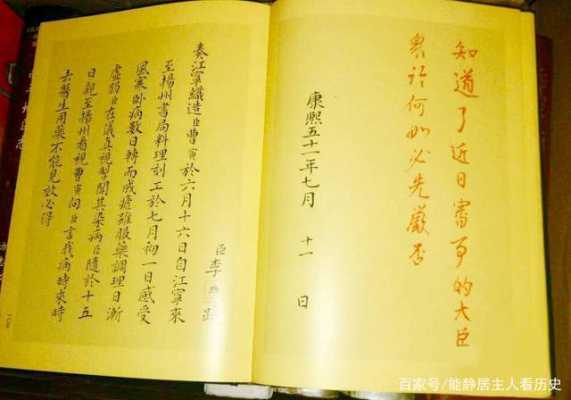 知道了近日審事的大臣
論何如必先
康熙五十一年七月 十一 日
臣李煦跪
奏江寧織造臣曹寅於六月十六日自江寧來
至揚州書局料理刻工於七月初一日感受
風寒臥病數日轉而成瘧雖服藥調理日漸
虛弱臣在儀真視掣聞其染病臣隨於十五
日親至揚州看視曹寅向臣言我病時來時
去醫生用藥不能見效必得
百家号/能静居主人看历史